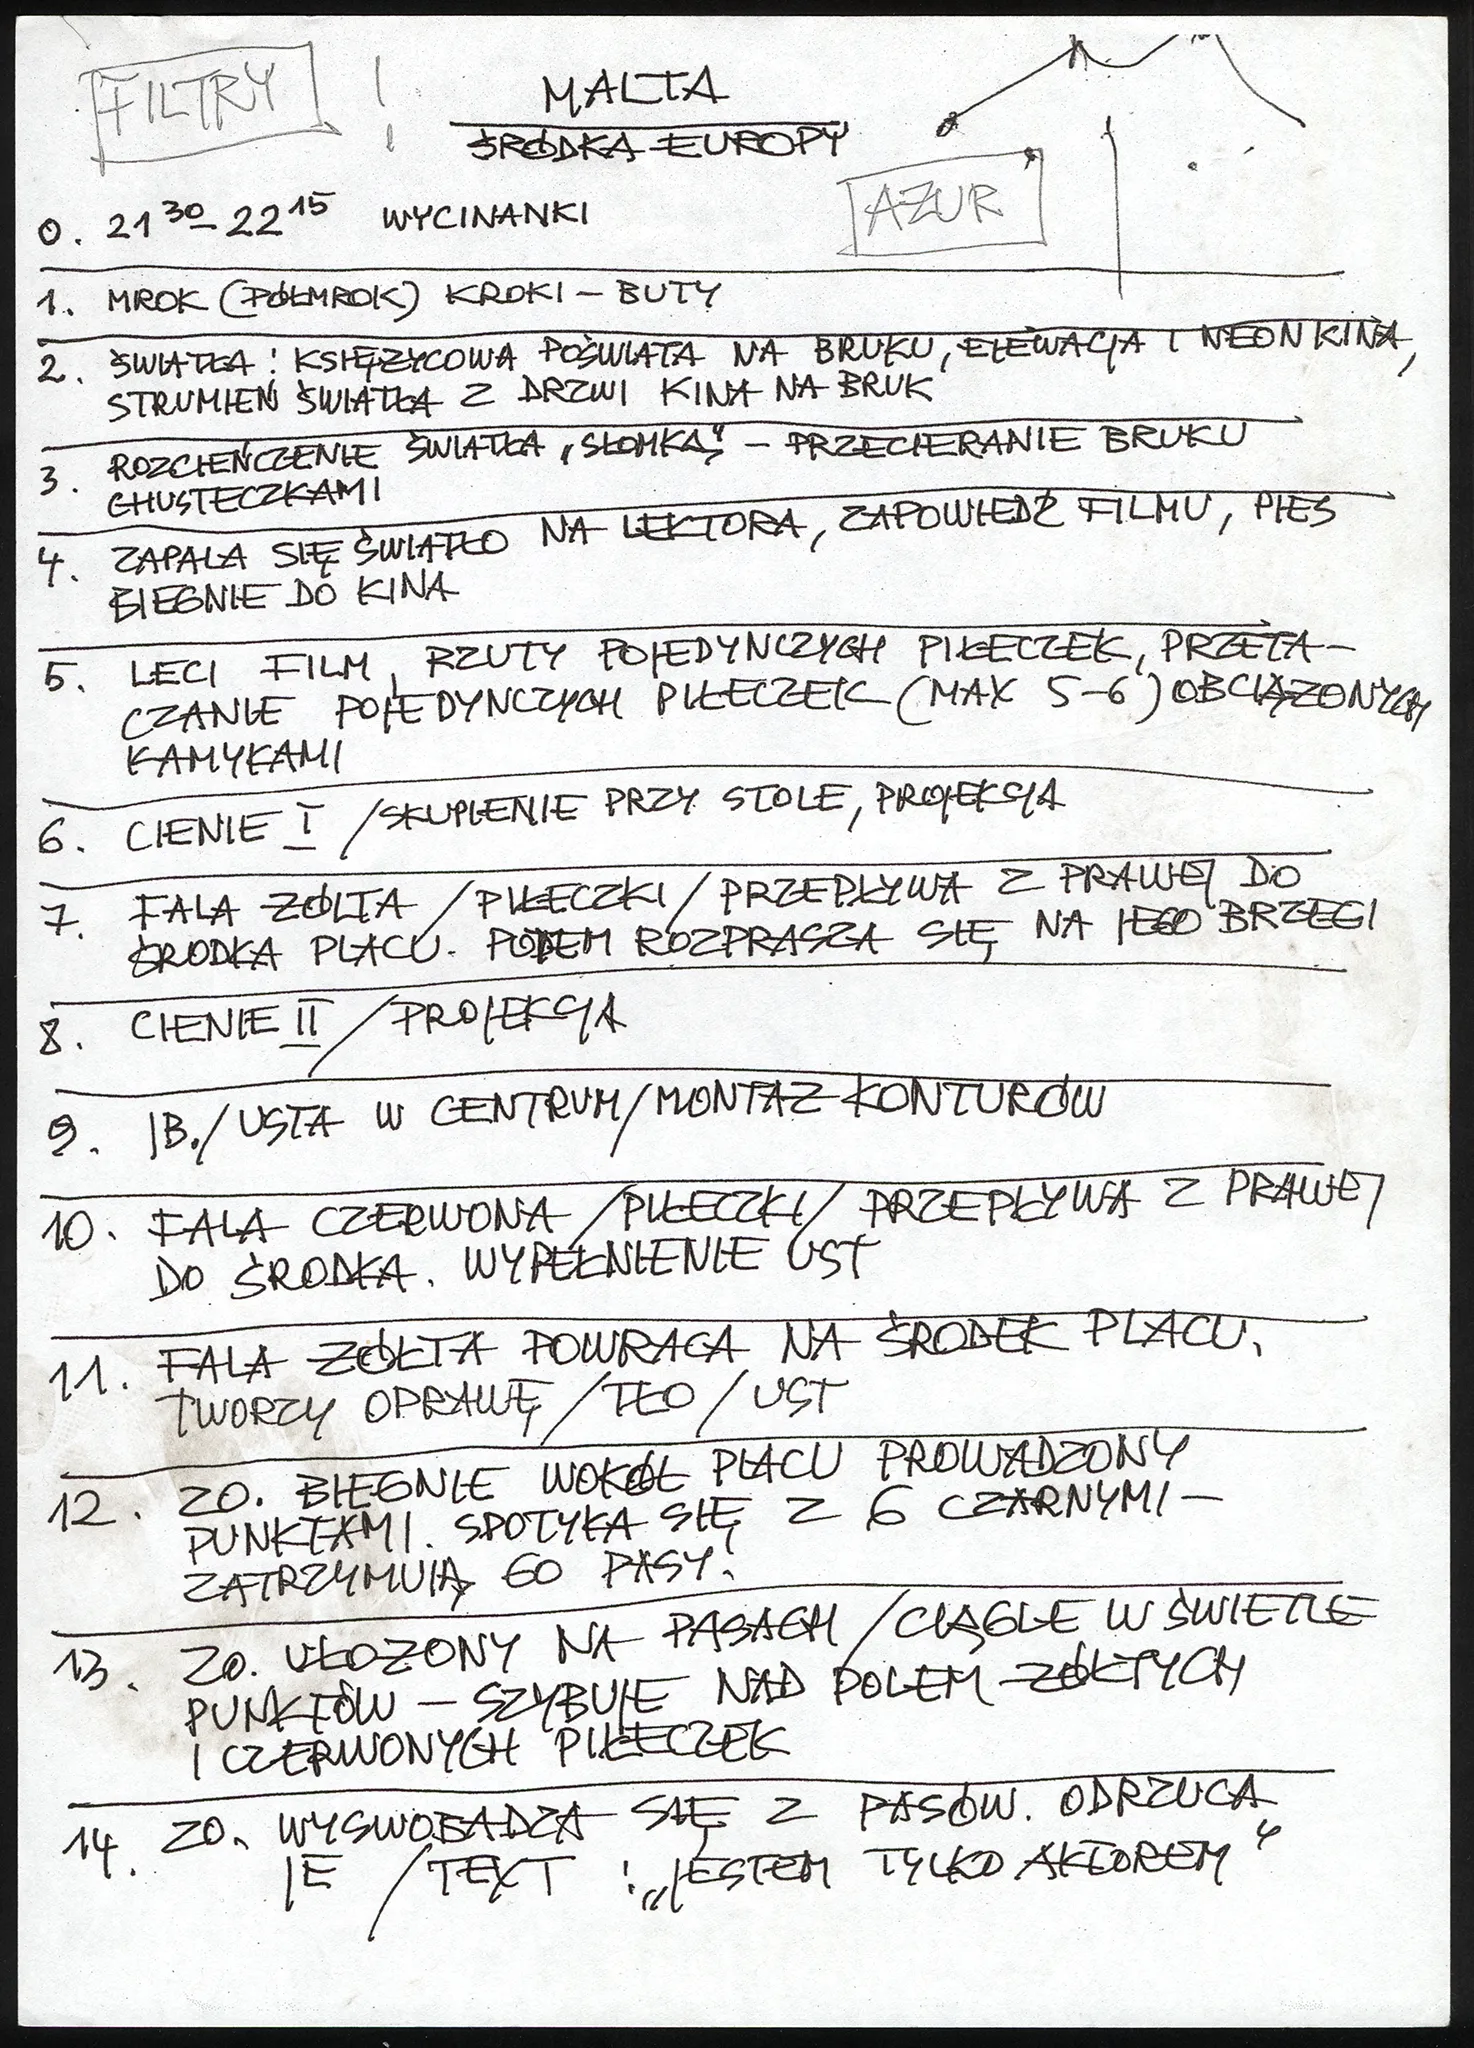 FILTRY !
MALTA
ŚRÓDKA EUROPY
AZUR
0. 21 30 – 22 15 WYCINANKI
1. MROK (PÓŁMROK) KROKI – BUTY
2. ŚWIATŁA: KSIĘŻYCOWA POŚWIATA NA BRUKU, ELEWACJA I NEON KINA,
STRUMIEŃ ŚWIATŁA Z DRZWI KINA NA BRUK
3. ROZCIEŃCZENIE ŚWIATŁA „SŁOMKĄ" – PRZECIERANIE BRUKU
CHUSTECZKAMI
4. ZAPALA SIĘ ŚWIATŁO NA LEKTORA, ZAPOWIEDŹ FILMU, PIES
BIEGNIE DO KINA
5. LECI FILM, RZUTY POJEDYNCZYCH PIŁECZEK, PRZETA–
CZANIE POJEDYNCZYCH PIŁECZEK (MAX 5–6) OBCIĄŻONYCH
KAMYKAMI
6. CIENIE I / SKUPIENIE PRZY STOLE, PROJEKCJA
7. FALA ŻÓŁTA / PIŁECZKI / PRZEPŁYWA Z PRAWEJ DO
ŚRODKA PLACU. POTEM ROZPRASZA SIĘ NA JEGO BRZEGI
8. CIENIE II / PROJEKCJA
9. JB. / USTA W CENTRUM / MONTAŻ KONTURÓW
10. FALA CZERWONA / PIŁECZKI / PRZEPŁYWA Z PRAWEJ
DO ŚRODKA. WYPEŁNIENIE UST
11. FALA ŻÓŁTA POWRACA NA ŚRODEK PLACU.
TWORZY OPRAWĘ / TŁO / UST
12. ZO. BIEGNIE WOKÓŁ PLACU PROWADZONY
PUNKTAMI. SPOTYKA SIĘ Z 6 CZARNYMI –
ZATRZYMUJĄ GO PASY.
13. ZO. UŁOŻONY NA PASACH / CIĄGLE W ŚWIETLE
PUNKTÓW – SZYBUJE NAD POLEM ŻÓŁTYCH
I CZERWONYCH PIŁECZEK
14. ZO. WYSWOBADZA SIĘ Z PASÓW. ODRZUCA
JE / TEXT : „JESTEM TYLKO AKTOREM"